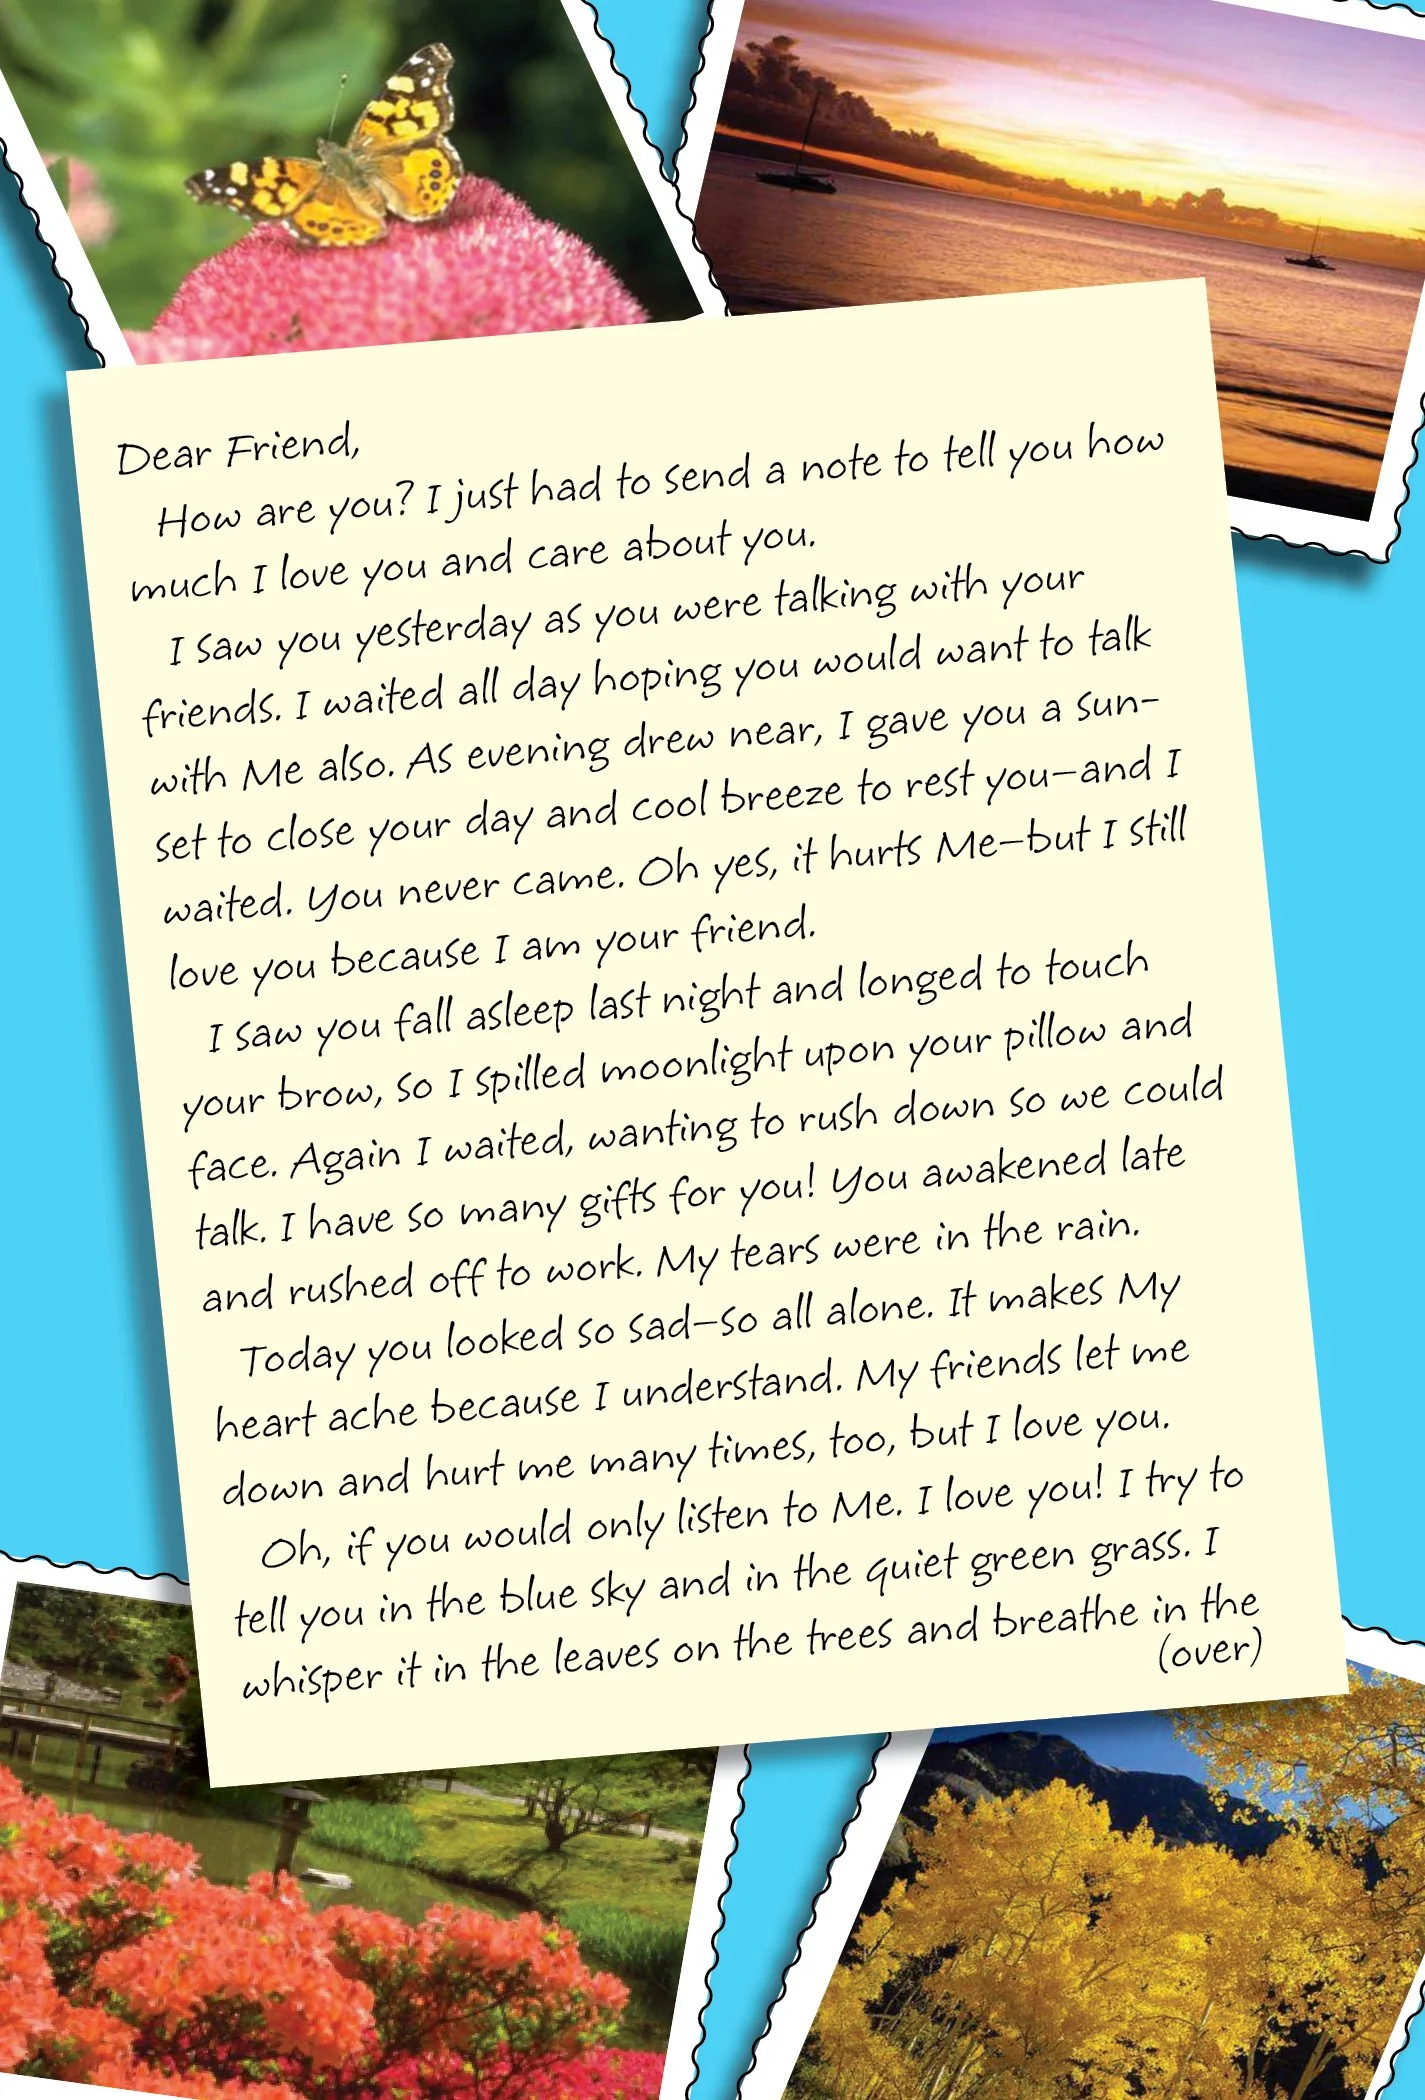 Dear Friend,
How are you? I just had to send a note to tell you how
much I love you and care about you.
I saw you yesterday as you were talking with your
friends. I waited all day hoping you would want to talk
with Me also. As evening drew near, I gave you a sun-
set to close your day and cool breeze to rest you—and I
waited. You never came. Oh yes, it hurts Me—but I still
love you because I am your friend.
I saw you fall asleep last night and longed to touch
your brow, so I spilled moonlight upon your pillow and
face. Again I waited, wanting to rush down so we could
talk. I have so many gifts for you! You awakened late
and rushed off to work. My tears were in the rain.
Today you looked so sad—so all alone. It makes My
heart ache because I understand. My friends let me
down and hurt me many times, too, but I love you.
Oh, if you would only listen to Me. I love you! I try to
tell you in the blue sky and in the quiet green grass. I
whisper it in the leaves on the trees and breathe in the
(over)